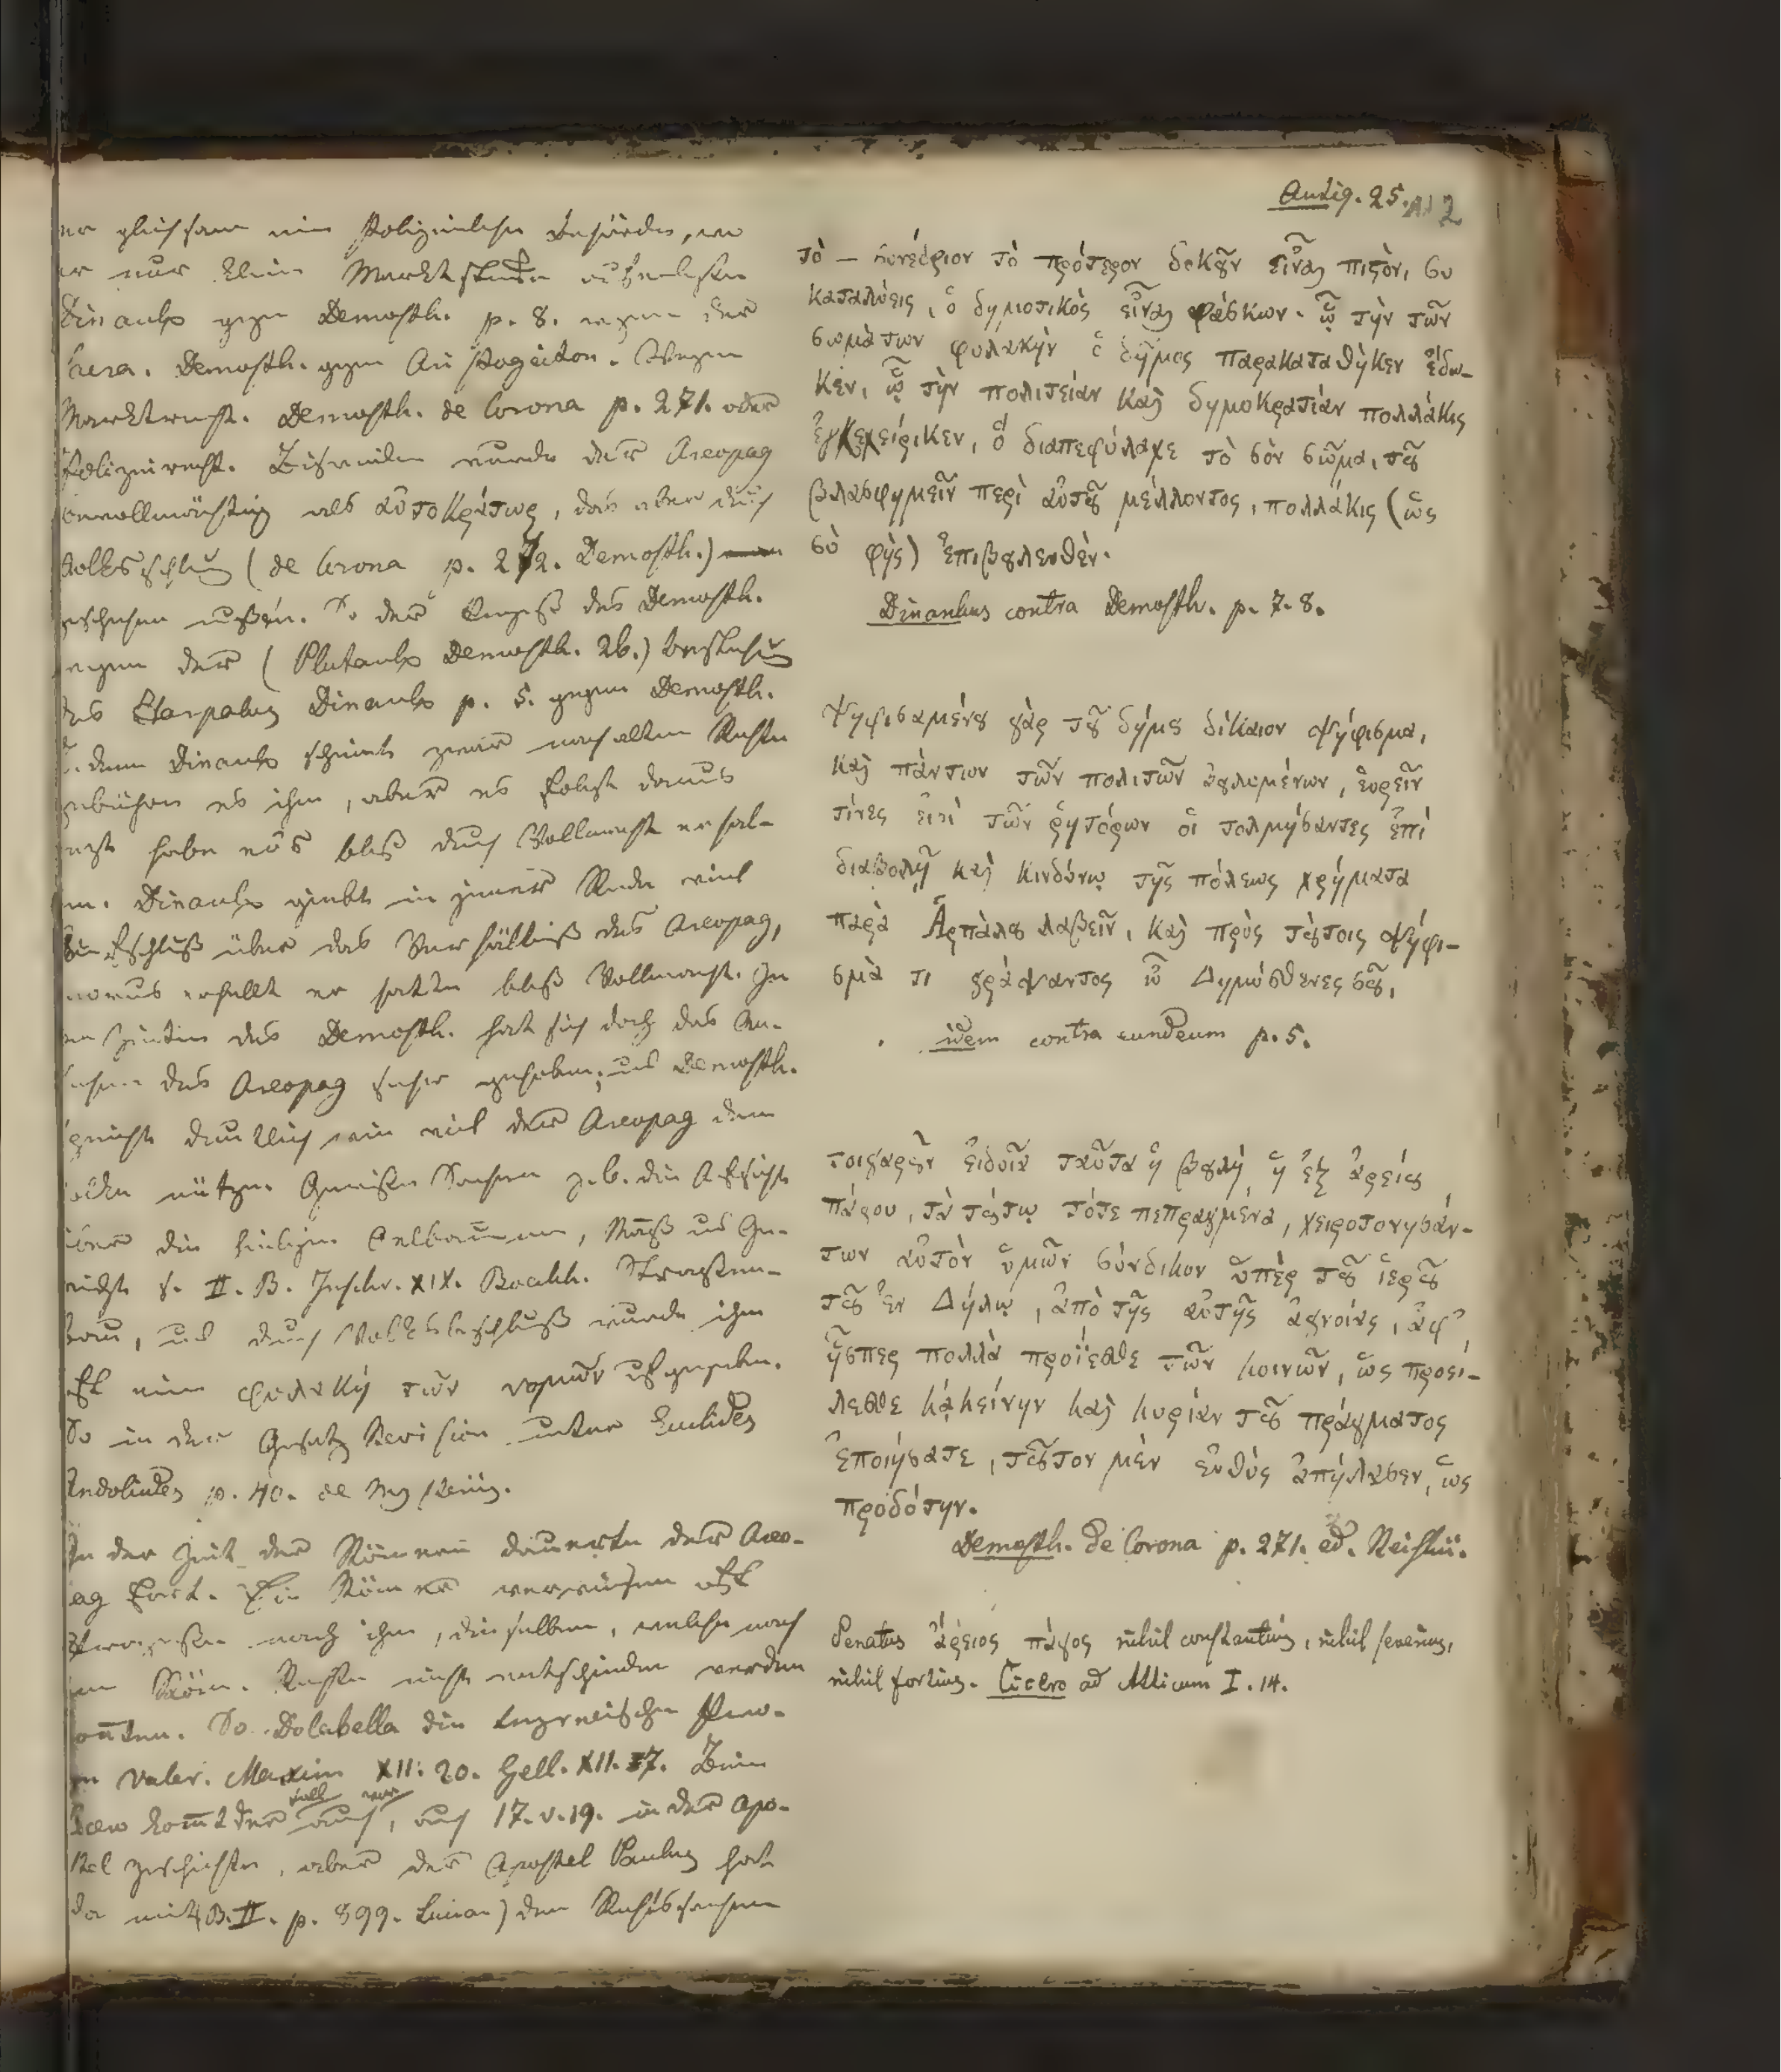 Antiq. 25.
er gleichsam eine Polizeiliche Behörde, wo
er nur kleine
Dinarch gegen Demosth. p. 8. wegen der
Demosth. gegen Aristogeiton. Wegen
Demosth. de Corona p. 271. oder
Polizeirecht. Zuweilen wurde der Areopag
bevollmächtig als αὐτοκράτωρ, das aber durch
Volksschluß (de Corona p. 272. Demosth.)
geschehen mußte. So der Prozeß des Demosth.
wegen der (Plutarch Demosth. 26.) Bestechung
des Harpalus Dinarch p. 5. gegen Demosth.
denn Dinarch scheint zwar nach alten Rechte
gebühren es ihm, aber es folgt daraus
habe er's bloß durch Vollmacht erhal-
ten. Dinarch giebt in seiner Rede viel
Aufschluß über das Verhältniß des Areopag,
woraus erhellt er hatte bloß Vollmacht. In
den Zeiten des Demosth. hat sich doch das An-
sehen des Areopag sehr gehoben; und Demosth.
spricht deutlich wie viel der Areopag dem
nütze. Gewisse Sachen z. b. die Aufsicht
über die heiligen Oelbäume, Maaß und Ge-
wicht s. II. B. Inschr. XIX. Boeckh. Strassen-
bau, und durch Volksbeschluß wurde ihm
oft eine φυλακή τῶν νομῶν aufgegeben.
So in der Gesetz Revision unter Euclides
Andocides p. 40. de Mysteriis.
In der Zeit der Römern dauerte der Areo-
pag fort. Die Römer verwiesen oft
Prozesse nach ihm, dieselben, welche nach
dem Röm. Rechte nicht entschieden werden
konnten. So Dolabella die Smyrneische Frau.
in Valer. Maxim XII. 20. Gell. XII. 7.
17. v. 19. in der Apo-
stel geschichte, aber der Apostel Paulus hat
da mit (B. II. p. 899. Lucian) den Rechtssachen
τὸ — συνέδριον τὸ πρότερον δοκοῦν εἶναι πιστὸν, συ
καταλύεις, ὁ δημοτικὸς εἶναι φάσκων. ᾧ τὴν τῶν
σωμάτων φυλακὴν ὁ δῆμος παρακαταθήκην ἔδω-
κεν, ᾧ τὴν πολιτείαν καὶ δημοκρατίαν πολλάκις
ἐγκεχείρικεν, ὅ διαπεφύλαχε τὸ σὸν σῶμα, τοῦ
βλασφημεῖν περὶ αὐτοῦ μέλλοντος, πολλάκις (ὥς
σὺ φῂς) ἐπιβουλευθὲν.
Dinarchus contra Demosth. p. 7. 8.
Ψηφισαμένου γὰρ τοῦ δήμου δίκαιον ψήφισμα,
καὶ πάντων τῶν πολιτῶν βουλομένων, εὑρεῖν
τίνες εἰσὶ τῶν ῥητόρων οἱ τολμήσαντες ἐπὶ
διαβολῇ καὶ κινδύνῳ τῆς πόλεως χρήματα
παρὰ Ἁρπάλου λαβεῖν, καὶ πρὸς τούτοις ψήφι-
σμὰ τι γράψαντος ὦ Δημόσθενες σοῦ,
idem contra eundeum p. 5.
τοιγαροῦν εἰδυῖα ταῦτα ἡ βουλὴ ἡ ἐξ ἀρείου
πάγου, τὰ τούτῳ τότε πεπραγμένα, χειροτονησάν-
των αὐτὸν ὑμῶν σύνδικον ὑπὲρ τοῦ ἱεροῦ
τοῦ ἐν Δήλῳ, ἀπὸ τῆς αὐτῆς ἀγνοίας, ἀφ'
ἧσπερ πολλὰ προΐεσθε τῶν κοινῶν, ὡς προεί-
λεσθε κἀκείνην καὶ κυρίαν τοῦ πράγματος
ἐποιήσατε, τοῦτον μὲν εὐθὺς ἀπήλασεν, ὡς
προδότην.
Demosth. de Corona p. 271. ed. Reiskii.
Senatus ἄρειος πάγος nihil constantius, nihil severius,
nihil fortius. Cicero ad Atticum I. 14.